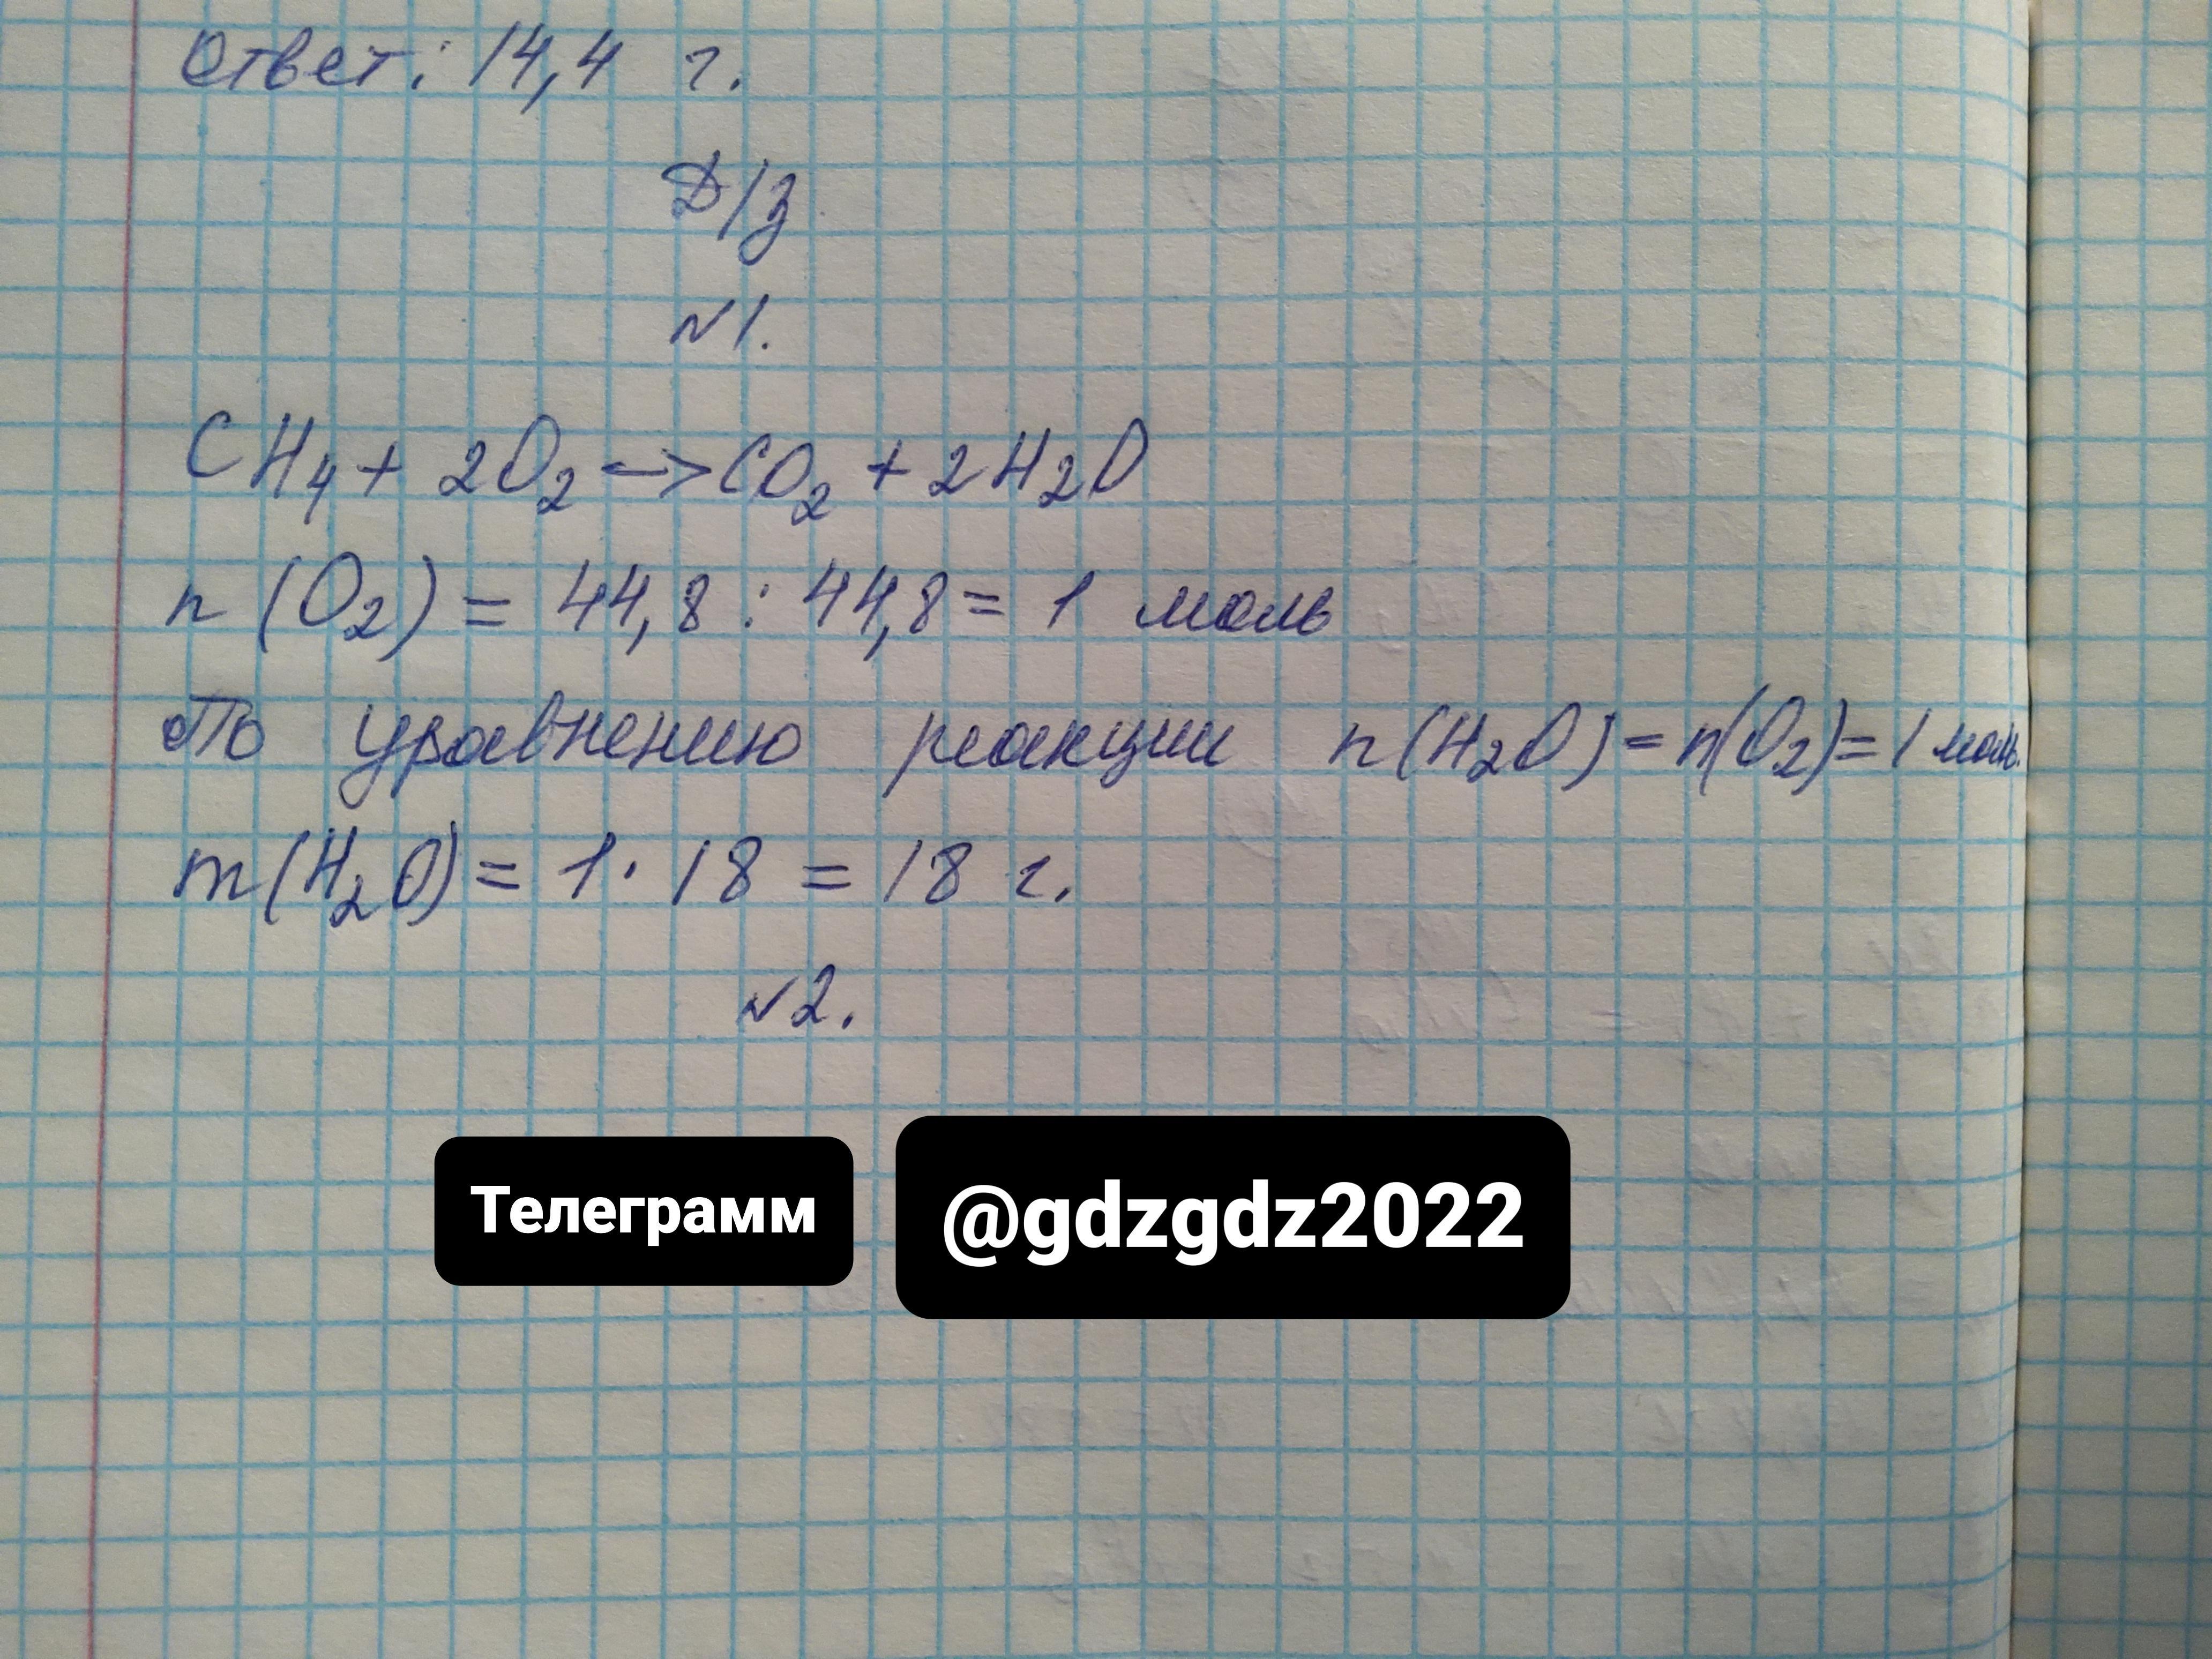 Ответ: 14,4 г.
Д/з
№1.
CH₄ + 2O₂ -> CO₂ + 2H₂O
n (O₂) = 44,8 : 44,8 = 1 моль
По уравнению реакции n(H₂O) = n(O₂) = 1 моль.
m(H₂O) = 1 · 18 = 18 г.
№2.
Телеграмм @gdzgdz2022